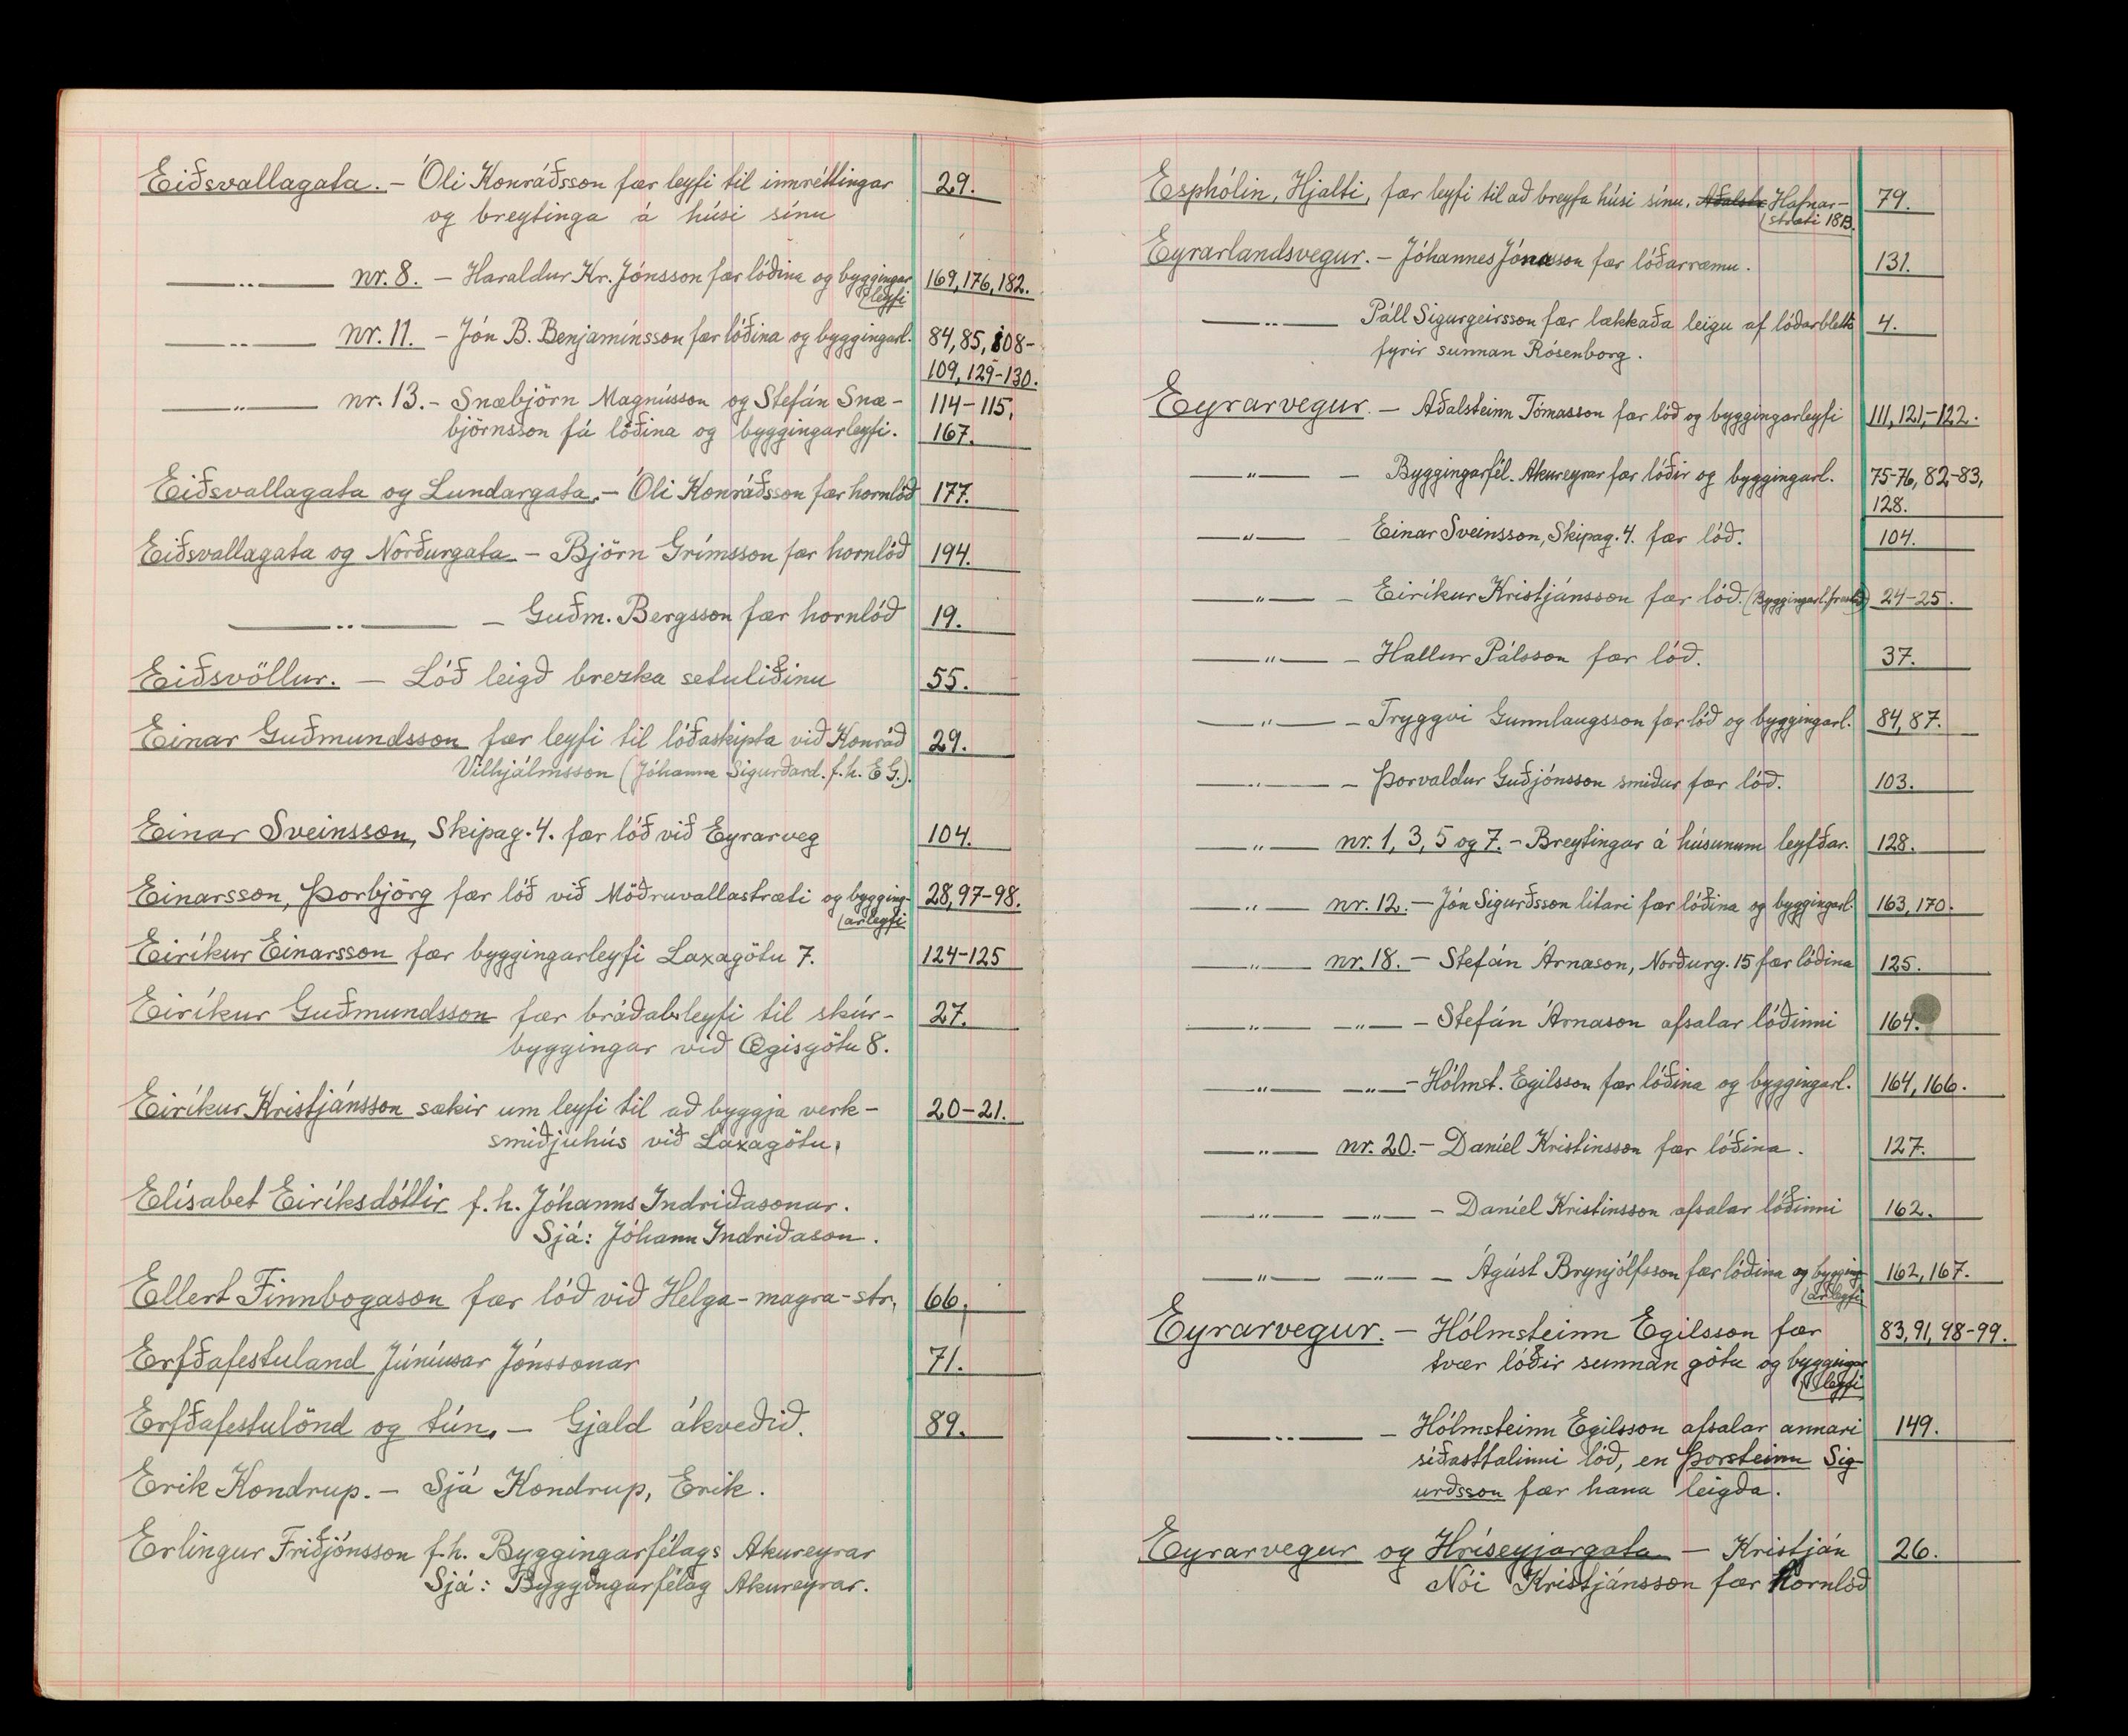 Eiðsvallagata. – Óli Konráðsson fær leyfi til innréttingar 29.
og breytinga á húsi sínu
——„—— nr. 8. – Haraldur Kr. Jónsson fær lóðina og byggingar 169, 176, 182.
leyfi
——„—— nr. 11. – Jón B. Benjamínsson fær lóðina og byggingarl. 84, 85, 108-
109, 129-130.
——„—— nr. 13. – Snæbjörn Magnússon og Stefán Snæ- 114-115,
björnsson fá lóðina og byggingarleyfi. 167.
Eiðsvallagata og Lundargata. – Óli Konráðsson fær hornlóð 177.
Eiðsvallagata og Norðurgata – Björn Grímsson fær hornlóð 194.
——„—— – Guðm. Bergsson fær hornlóð 19.
Eiðsvöllur. – Lóð leigð brezka setuliðinu 55.
Einar Guðmundsson fær leyfi til lóðaskipta við Konráð 29.
Vilhjálmsson (Jóhanna Sigurðard. f.h. E G.).
Einar Sveinsson, Skipag. 4. fær lóð við Eyrarveg 104.
Einarsson, Þorbjörg fær lóð við Möðruvallastræti og bygging- 28, 97-98.
arleyfi
Eiríkur Einarsson fær byggingarleyfi Laxagötu 7. 124-125
Eiríkur Guðmundsson fær bráðab.leyfi til skúr- 27.
byggingar við Ægisgötu 8.
Eiríkur Kristjánsson sækir um leyfi til að byggja verk- 20-21.
smiðjuhús við Laxagötu.
Elísabet Eiríksdóttir f.h. Jóhanns Indriðasonar.
Sjá: Jóhann Indriðason.
Ellert Finnbogason fær lóð við Helga-magra-str. 66.
Erfðafestuland Júníusar Jónssonar 71.
Erfðafestulönd og tún. – Gjald ákveðið. 89.
Erik Kondrup. – Sjá Kondrup, Erik.
Erlingur Friðjónsson f.h. Byggingarfélags Akureyrar
Sjá: Byggingarfélag Akureyrar.
Esphólin, Hjalti, fær leyfi til að breyta húsi sínu, Aðalstr. Hafnar- 79.
stræti 18B.
Eyrarlandsvegur. – Jóhannes Jónasson fær lóðarræmu. 131.
——„—— Páll Sigurgeirsson fær lækkaða leigu af lóðarblett 4.
fyrir sunnan Rósenborg.
Eyrarvegur. – Aðalsteinn Tómasson fær lóð og byggingarleyfi 111, 121-122.
——„—— – Byggingarfél. Akureyrar fær lóðir og byggingarl. 75-76, 82-83,
128.
——„—— – Einar Sveinsson, Skipag. 4. fær lóð. 104.
——„—— – Eiríkur Kristjánsson fær lóð. (Byggingarl. frestað) 24-25.
——„—— – Hallur Pálsson fær lóð. 37.
——„—— – Tryggvi Gunnlaugsson fær lóð og byggingarl. 84, 87.
——„—— – Þorvaldur Guðjónsson smiður fær lóð. 103.
——„—— nr. 1, 3, 5 og 7. – Breytingar á húsunum leyfðar. 128.
——„—— nr. 12. – Jón Sigurðsson litari fær lóðina og byggingarl. 163, 170.
——„—— nr. 18. – Stefán Árnason, Norðurg. 15 fær lóðina 125.
——„—— —„— – Stefán Árnason afsalar lóðinni 164.
——„—— —„— – Hólmst. Egilsson fær lóðina og byggingarl. 164, 166.
——„—— nr. 20. – Daníel Kristinsson fær lóðina. 127.
——„—— —„— – Daníel Kristinsson afsalar lóðinni 162.
——„—— —„— – Ágúst Brynjólfsson fær lóðina og bygging- 162, 167.
arleyfi
Eyrarvegur. – Hólmsteinn Egilsson fær 83, 91, 98-99.
tvær lóðir sunnan götu og byggingar
leyfi
——„—— – Hólmsteinn Egilsson afsalar annari 149.
síðasttalinni lóð, en Þorsteinn Sig-
urðsson fær hana leigða.
Eyrarvegur og Hríseyjargata – Kristján 26.
Nói Kristjánsson fær hornlóð